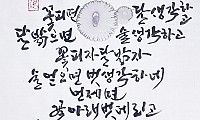 꽃피면 달 생각하고
달 밝으면 술 생각하고
꽃피자 달 밝자
술 얻으면 벗 생각하네
언제면
꽃 아래 벗 데리고